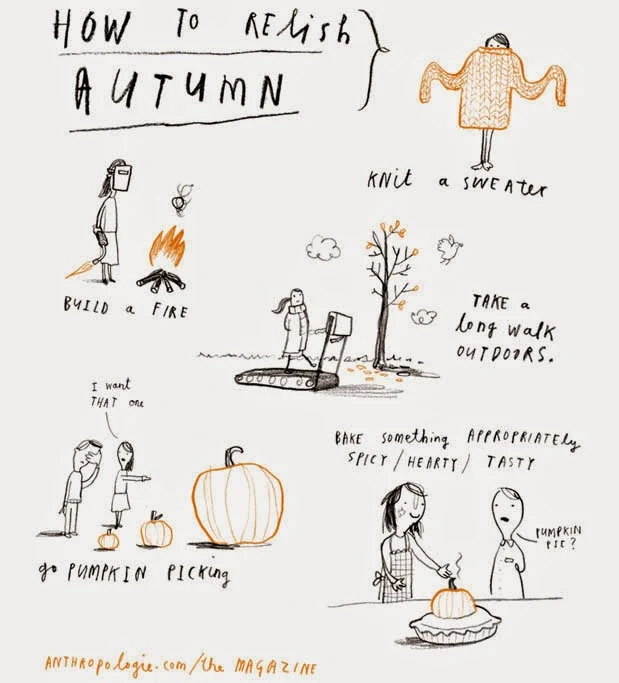 HOW TO RELISH
AUTUMN
KNIT a SWEATER
BUILD a FIRE
TAKE a
long WALK
OUTDOORS.
I want
THAT one
go PUMPKIN PICKING
BAKE something APPROPRIATELY
SPICY / HEARTY / TASTY
PUMPKIN
PIE?
ANTHROPOLOGIE.COM/the MAGAZINE